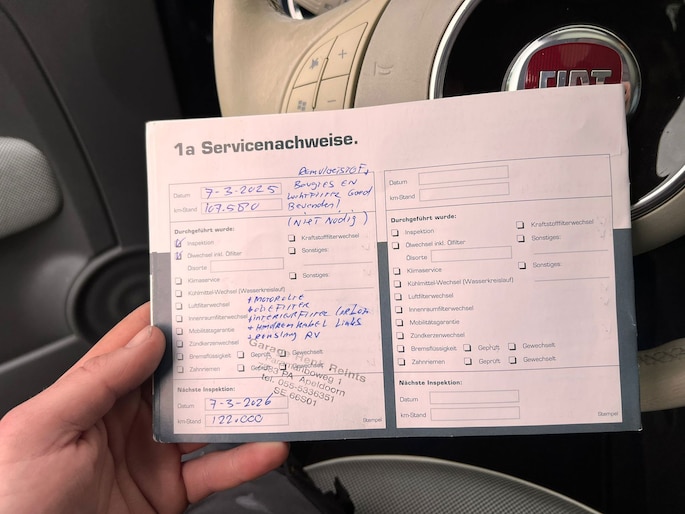 FIAT
1a Servicenachweise.
Remvloeistof,
Bougies en
Luchtfilter Goed
Bevonden!
(Niet Nodig)
Datum 7-3-2025
km-Stand 107.580
Durchgeführt wurde:
Inspektion
Ölwechsel inkl. Ölfilter
Ölsorte
Klimaservice
Kühlmittel-Wechsel (Wasserkreislauf)
Luftfilterwechsel
Innenraumfilterwechsel
Mobilitätsgarantie
Zündkerzenwechsel
Bremsflüssigkeit Geprüft Gewechselt
Zahnriemen Geprüft Gewechselt
Kraftstofffilterwechsel
Sonstiges:
Sonstiges:
+ Motorolie
+ Oliefilter
+ Interieurfilter
+ Handremkabel Links
+ RV
Garage Henk Reints
Paramariboweg 1
PA Apeldoorn
tel. 055-5336351
Nächste Inspektion:
Datum 7-3-2026
km-Stand 122.000
Stempel
Datum
km-Stand
Durchgeführt wurde:
Inspektion
Ölwechsel inkl. Ölfilter
Ölsorte
Klimaservice
Kühlmittel-Wechsel (Wasserkreislauf)
Luftfilterwechsel
Innenraumfilterwechsel
Mobilitätsgarantie
Zündkerzenwechsel
Bremsflüssigkeit Geprüft Gewechselt
Zahnriemen Geprüft Gewechselt
Kraftstofffilterwechsel
Sonstiges:
Sonstiges:
Nächste Inspektion:
Datum
km-Stand
Stempel